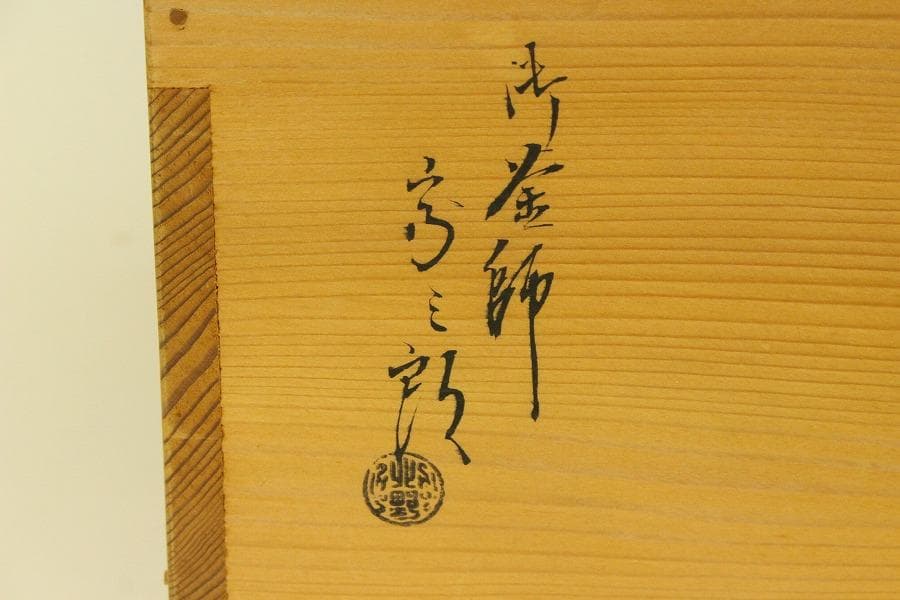 御釜師
宗三郎